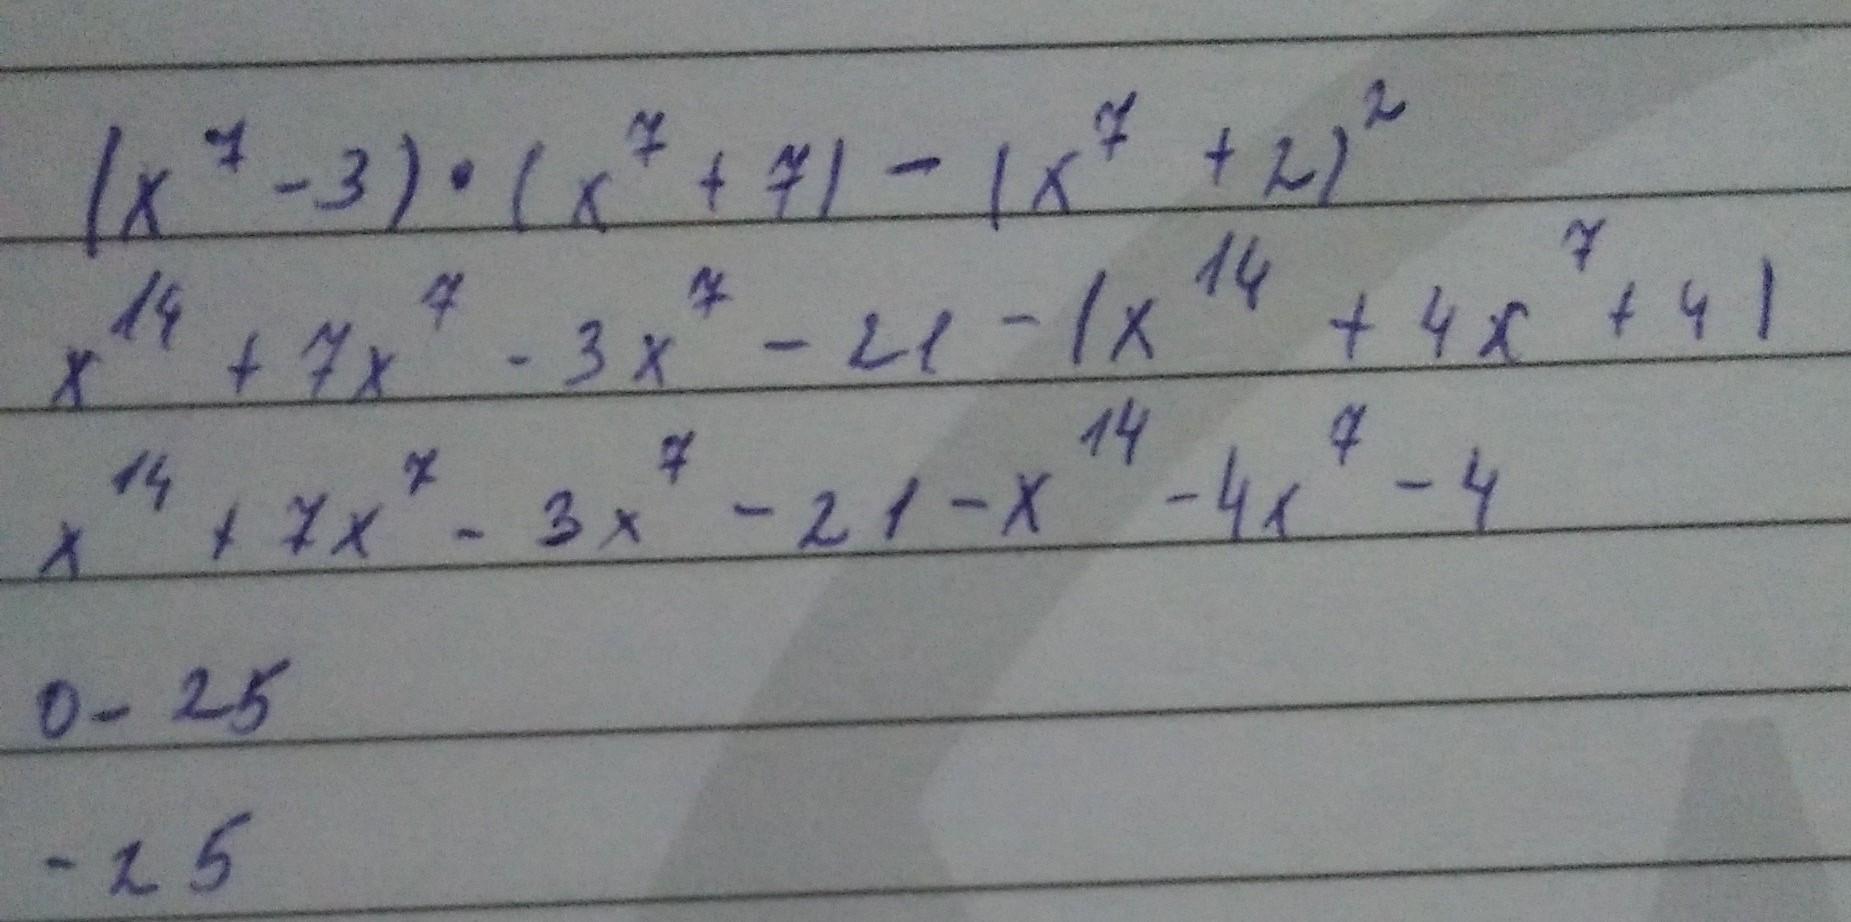 (x⁷ - 3) • (x⁷ + 7) - (x⁷ + 2)²
x¹⁴ + 7x⁷ - 3x⁷ - 21 - (x¹⁴ + 4x⁷ + 4)
x¹⁴ + 7x⁷ - 3x⁷ - 21 - x¹⁴ - 4x⁷ - 4
0 - 25
- 25